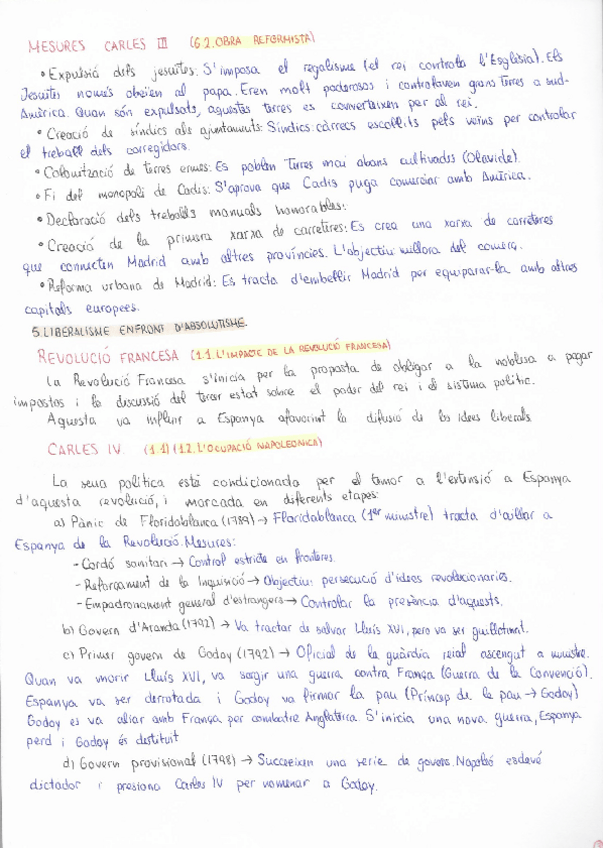 MESURES CARLES III (6.2. OBRA REFORMISTA)
• Expulsió dels jesuïtes: S'imposa el regalisme (el rei controla l'Església). Els
Jesuïtes només obeïen al papa. Eren molt poderosos i controlaven grans terres a sud-
Amèrica. Quan són expulsats, aquestes terres es converteixen per al rei.
• Creació de síndics als ajuntaments: Síndics: càrrecs escollits pels veïns per controlar
el treball dels corregidors.
• Colonització de terres ermes: Es poblen terres mai abans cultivades (Olavide).
• Fi del monopoli de Cadis: S'aprova que Cadis puga comerciar amb Amèrica.
• Declaració dels treballs manuals honorables:
• Creació de la primera xarxa de carreteres: Es crea una xarxa de carreteres
que connecten Madrid amb altres províncies. L'objectiu: millora del comerç.
• Reforma urbana de Madrid: Es tracta d'embellir Madrid per equiparar-la amb altres
capitals europees.
5. LIBERALISME ENFRONT D'ABSOLUTISME.
REVOLUCIÓ FRANCESA (1.1. L'IMPACTE DE LA REVOLUCIÓ FRANCESA)
La Revolució Francesa s'inicia per la proposta de obligar a la noblesa a pagar
impostos i la discussió del tercer estat sobre el poder del rei i el sistema polític.
Aquesta va influir a Espanya afavorint la difusió de les idees liberals.
CARLES IV (1.1) (1.2. L'OCUPACIÓ NAPOLEÒNICA)
La seua política està condicionada per el temor a l'extensió a Espanya
d'aquesta revolució, i marcada en diferents etapes:
a) Pànic de Floridablanca (1789) → Floridablanca (1er ministre) tracta d'aïllar a
Espanya de la Revolució. Mesures:
- Cordó sanitari → Control estricte en fronteres.
- Reforçament de la Inquisició → Objectiu: persecució d'idees revolucionàries.
- Empadronament general d'estrangers → Controlar la presència d'aquests.
b) Govern d'Aranda (1792) → Va tractar de salvar Lluís XVI, pero va ser guillotinat.
c) Primer govern de Godoy (1792) → Oficial de la guàrdia reial ascengut a ministre.
Quan va morir Lluís XVI, va sorgir una guerra contra França (Guerra de la Convenció).
Espanya va ser derrotada i Godoy va firmar la pau (Príncep de la pau → Godoy)
Godoy es va aliar amb França per combatre Anglaterra. S'inicia una nova guerra, Espanya
perd i Godoy és destituït
d) Govern provisional (1798) → Succeeixen una serie de governs. Napoleó esdevé
dictador i presiona Carles IV per nomenar a Godoy.